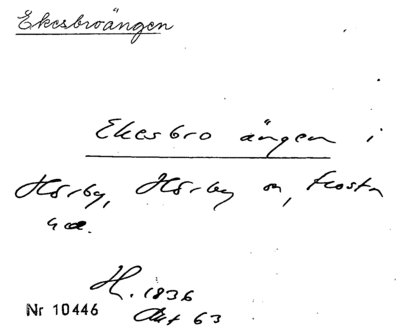 Ekesbroängen
Ekesbro ängen i
Hörby, Hörby sn, Frosta
hd.
H. 1836
Akt 63
Nr 10446